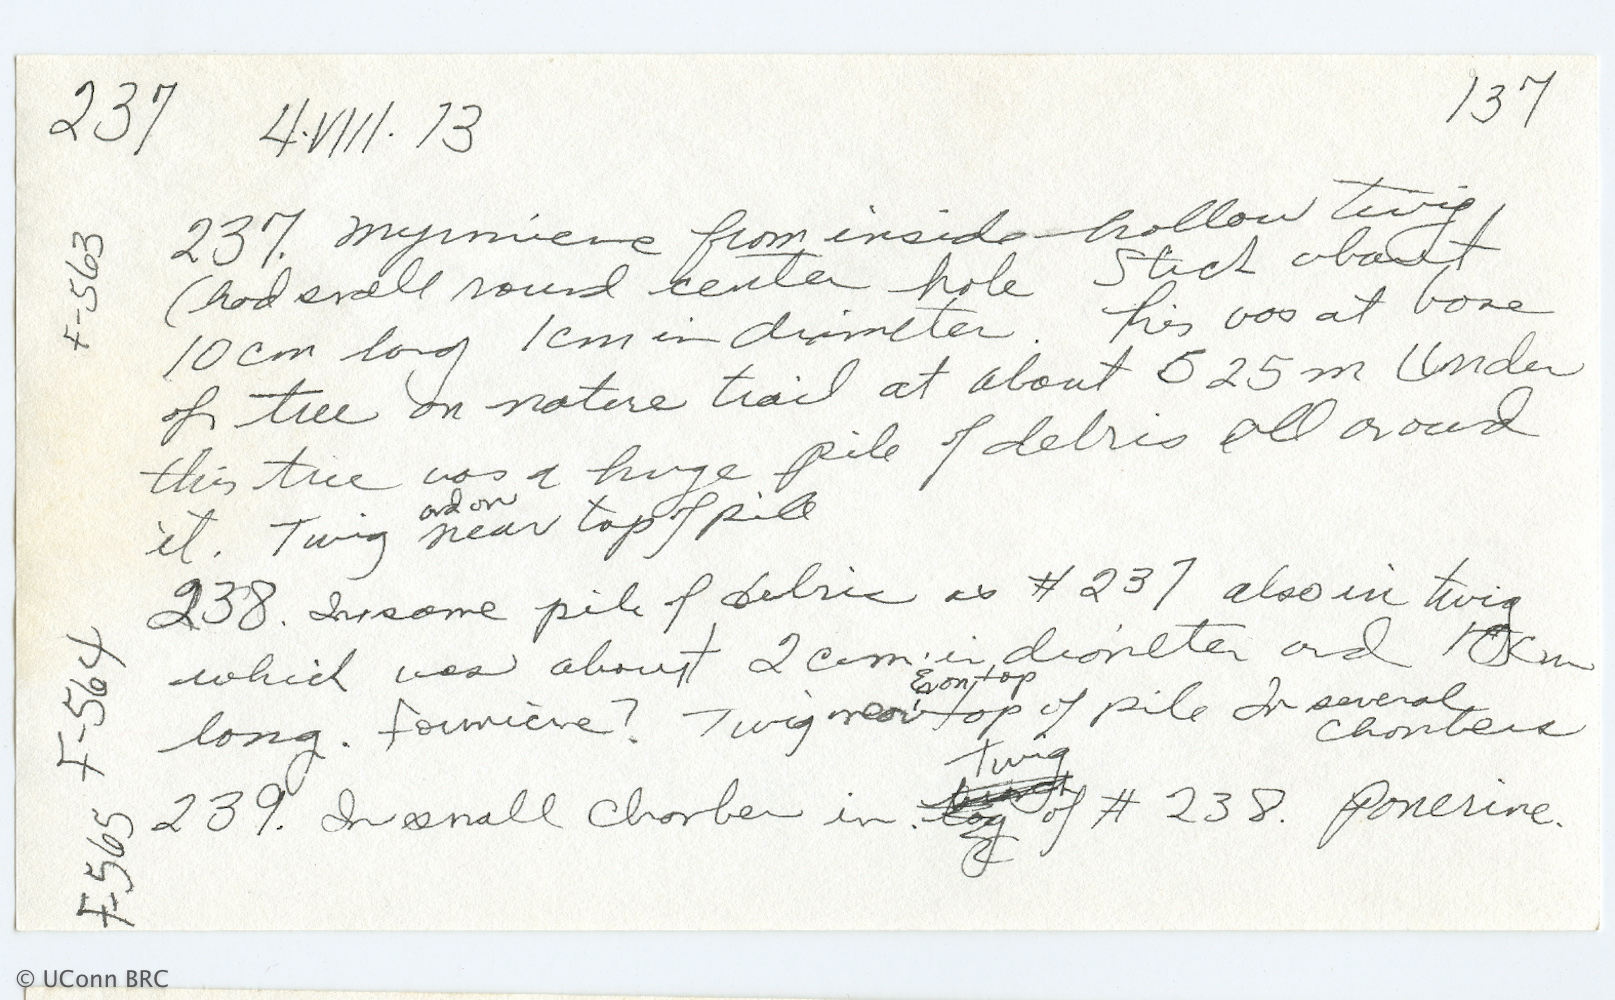 237 4.VIII.73 137
F-563
237. Myrmicine from inside hollow twig
(had small round center hole Stick about
10cm long 1cm in diameter. This was at base
of tree on nature trail at about 525 m Under
this tree was a huge pile of debris all around
it. Twig and on near top of pile
238. In same pile of debris as # 237 also in twig
F-564
which was about 2 cm in diameter and cm
long. Formicine? Twig near & on top top of pile In several
chambers
F-565
239. In small chamber in Twig of # 238. Ponerine.
© UConn BRC